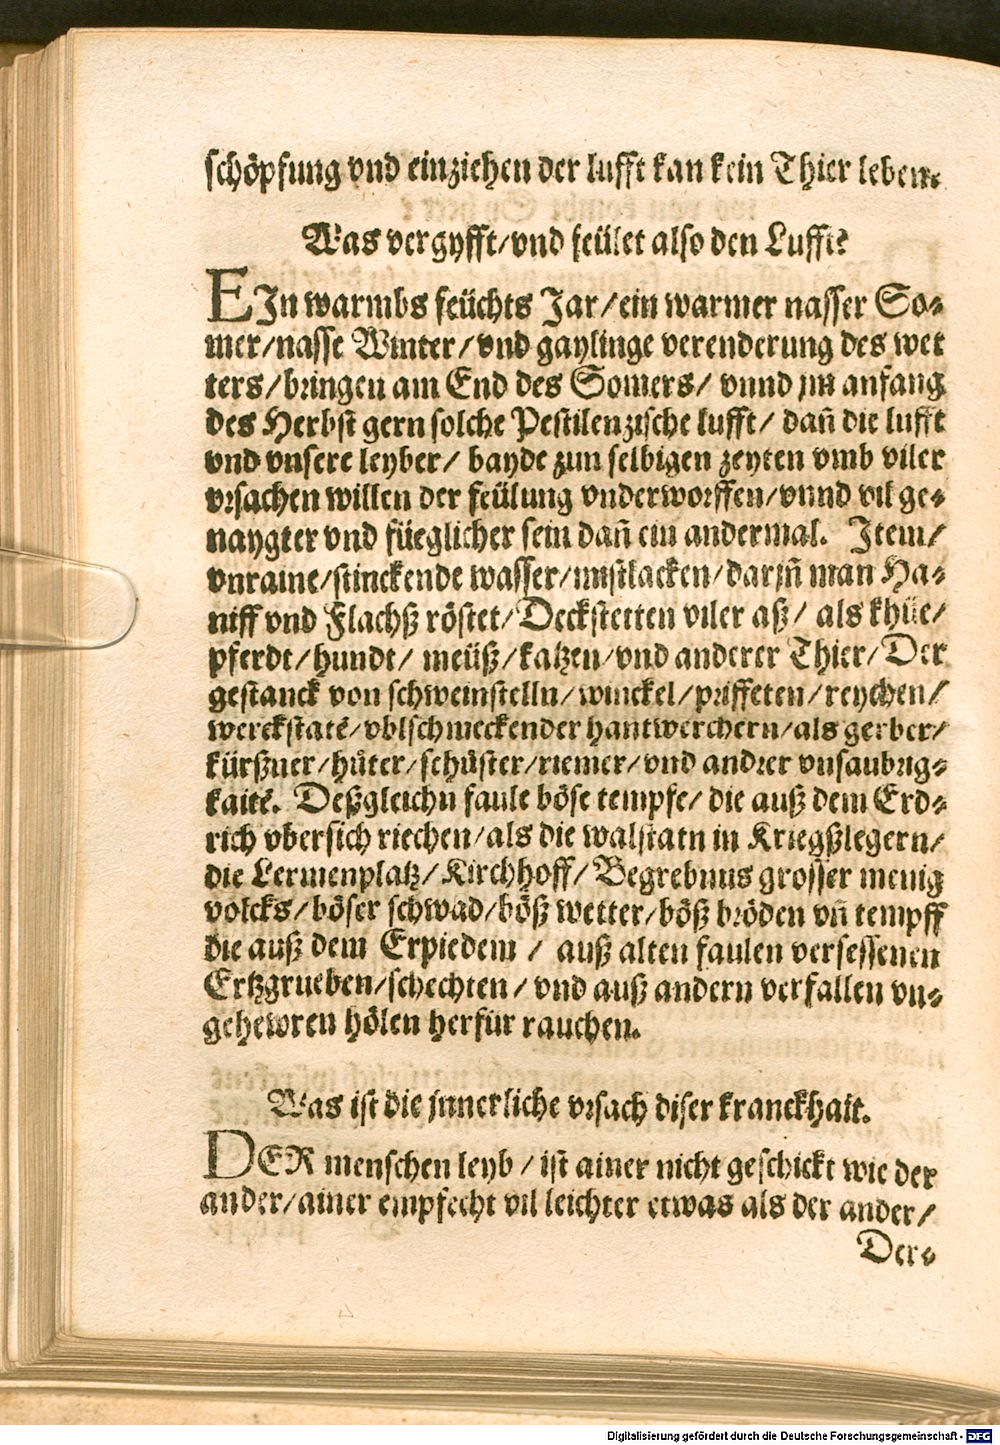 schöpfung vnd einziehen der lufft kan kein Thier leben.
Was vergyfft/vnd feület also den Lufft?
EJn warmbs feüchts Jar/ein warmer nasser So-
mer/nasse Winter/vnd gaylinge verenderung des wet
ters/bringen am End des Somers/ vnnd jm anfang
des Herbst gern solche Pestilenzische lufft/ dañ die lufft
vnd vnsere leyber/ bayde zun selbigen zeyten vmb viler
vrsachen willen der feülung vnderworffen/vnnd vil ge-
naygter vnd füeglicher sein dañ ein andermal. Item/
vnraine/stinckende wasser/mistlacken/darjñ man Ha-
niff vnd Flachß röstet/Deckstetten viler aß/ als khüe/
pferdt/hundt/ meüß/katzen/vnd anderer Thier/Der
gestanck von schweinstelln/winckel/priffeten/reychen/
werckstatẽ/vblschmeckender hantwerchern/als gerber/
kürßner/hůter/schůster/riemer/vnd andrer vnsaubrig-
kaitẽ. Deßgleichn faule böse tempfe/ die auß dem Erd-
rich vbersich riechen/als die walstatn in Kriegßlegern/
die Lermenplatz/Kirchhoff/Begrebnus grosser menig
volcks/böser schwad/böß wetter/böß bröden vñ tempff
die auß dem Erpiedem / auß alten faulen versessenen
Ertzgrueben/schechten/ vnd auß andern verfallen vn-
gehewren hölen herfür rauchen.
Was ist die jnnerliche vrsach diser kranckhait.
DER menschen leyb / ist ainer nicht geschickt wie der
ander/ainer empfecht vil leichter etwas als der ander/
Der-
Digitalisierung gefördert durch die Deutsche Forschungsgemeinschaft - DFG